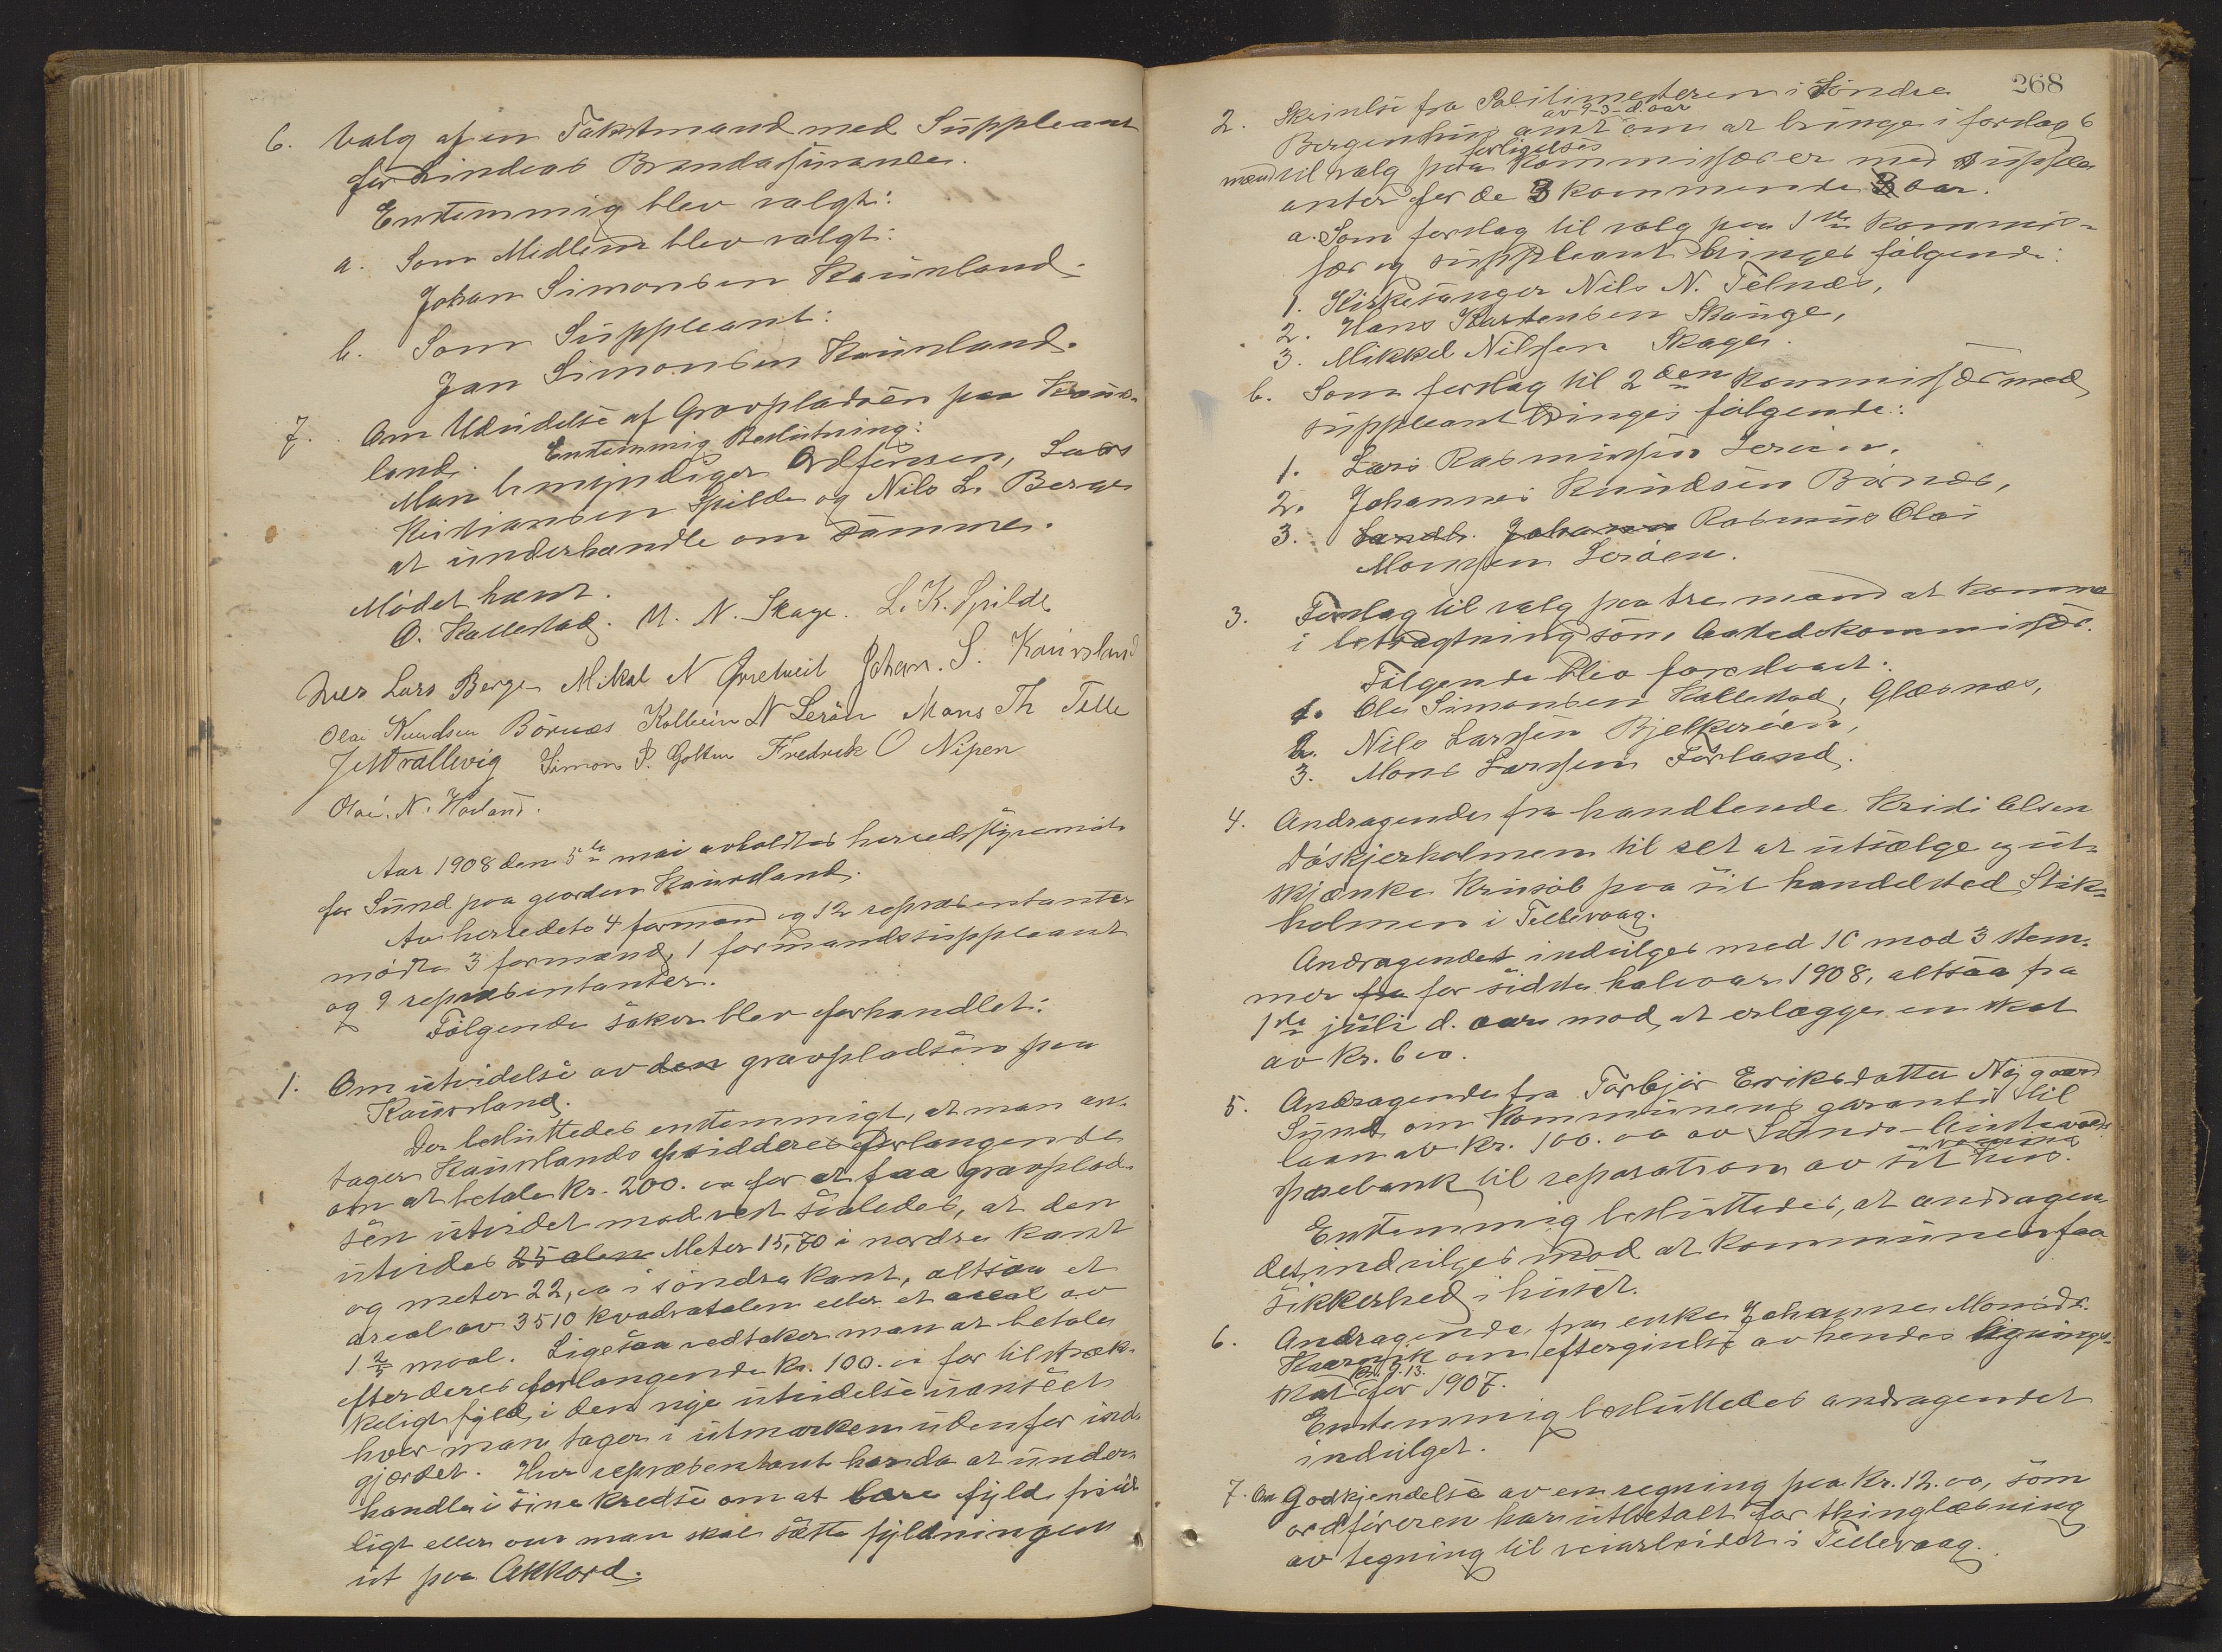 6. Valg af en Takstmand med Suppleant
for Lindeas Brandassurance.
Enstemmig blev valgt:
a. Som Medlem blev valgt:
Johan Simonsen Kausland.
b. Som Suppleant:
Jan Simonsen Kausland.
7. Om Udvidelse af Gravpladsen paa Kaus-
land. Enstemmig Beslutning:
Man bemyndiger Ordføreren, Lars
Kristiansen Spilde og Nils L. Berge
at underhandle om samme.
Mødet hævt.
O. Kallestad. M. N. Skage. L. K. Spilde
Lars Berge Mikal N Øvretveit Johan. S. Kausland
Olai Knudsen Börnæs Kolbein N Lerøen Mons Th Telle
Simon P. Golten Fredrik O Nipen
Olai. N. Hovland.
Aar 1908 den 5te mai avholdtes herredsstyremøte
for Sund paa gaarden Kausland.
Av herredets 4 formænd og 12 repræsentanter
mødte 3 formænd, 1 formandssuppleant
og 9 repræsentanter.
Følgende saker blev forhandlet:
1. Om utvidelse av den gravpladsen paa
Kausland.
Der besluttedes enstemmigt, at man an-
tager Kauslands opsidderes forlangende
om at betale Kr. 200.00 for at faa gravplad-
sen utvidet mod vest saaledes, at den
utvides 25 alen Meter 15,70 i nordre kant
og meter 22,00 i søndre kant, altsaa et
areal av 3510 kvadratalen eller et areal av
1 2/5 maal. Ligesaa vedtaker man at betale
efter deres forlangende Kr. 100.00 for tilstræk-
keligt fyld, i den nye utvidelse uanseet
hvor man tager i utmarken udenfor ind-
gjærdet. Hver repræsentant har da at under-
handle i sine kredse om at bære fyld frivil-
ligt eller om man skal sætte fyldningen
ut paa Akkord.
268
2. Skrivelse fra Politimesteren i Söndre
av 9-3- d. aar
Bergenhus amt om at bringe i forslag 6
forligelses
mænd til valg paa kommissærer med supple-
anter for de 3 kommende 3 aar.
a. Som forslag til valg paa 1ste kommis-
sær og suppleant bringes følgende:
1. Kirkesanger Nils N. Telnæs,
2. Hans Karstensen Skauge,
3. Mikkel Nilssen Skage.
b. Som forslag til 2den kommissær med
suppleant bringes følgende:
1. Lars Rasmussen Lerøen.
2. Johannes Knudsen Börnæs,
3. Landh. Johannes Rasmus Olai
Monssen Lerøen.
3. Forslag til valg paa tre mænd at komme
i betragtning som Aastedskommissær.
Følgende blev foreslaaet:
1. Ole Simonsen Kallestad, Glæsnæs,
2. Nils Larssen Bjelkerøen,
3. Mons Larssen Førland.
4. Andragende fra handlende Kristi Olsen
Dåskjerholmen til ret at utsælge og ut-
skjænke Krusøl paa sit handelsted Stik-
holmen i Tellevaag.
Andragendet indvilges med 10 mod 3 stem-
mer fra for sidste halvaar 1908, altsaa fra
1ste juli d. aar mod at erlægge en skat
av Kr. 600.
5. Andragende fra Torbjör Eriksdatter Nygaard
Sund om Kommunens garanti til
laan av Kr. 100.00 av Sunds-Austevolds
sparebank til reparation av sit hus.
Enstemmig besluttedes, at andragen-
det indvilges mod at kommunen faa
sikkerhed i huset.
6. Andragende fra enke Johanne Monsdr.
om eftergivelse av hendes lignings-
Kr. 9.13.
skat for 1907.
Enstemmig besluttedes andragendet
indvilget.
7. Om Godkjendelse av en regning paa Kr. 12.00, som
ordføreren har utbetalt for thinglæsning
av tegning til veiarbeidet i Tellevaag.